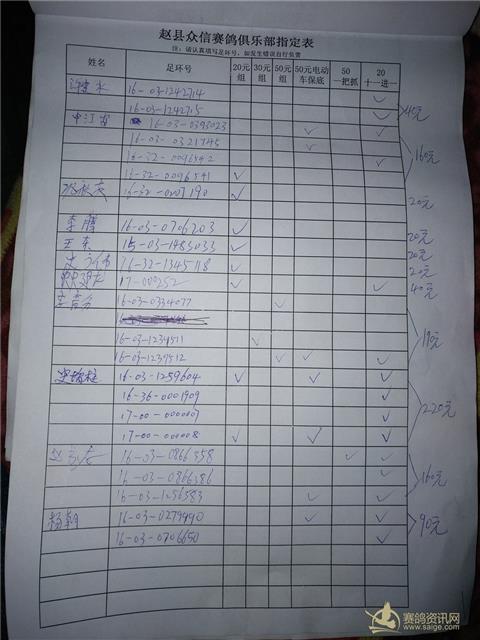 赵县众信赛鸽俱乐部指定表
注:请认真填写足环号,如发生错误自行负责
姓名 足环号 20元组 30元组 50元组 50元电动车保底 50一把抓 20十一进一
16-03-1242714 ✓
16-03-1242715 ✓ 45元
申江雷 16-03-0393023 ✓ ✓
16-03-0321745 ✓
16-32-0096542 ✓ 160元
16-32-0096541 ✓
16-32-0207190 ✓ 20元
李鹏 16-03-0706203 ✓ 20元
王东 15-03-1483033 ✓ 20元
16-32-1345118 ✓ 20元
17-000252 ✓ ✓ 40元
16-03-0334077 ✓
16-03-1234511 ✓ 190元
16-03-1239512 ✓ ✓ ✓
16-03-1259604 ✓ ✓ ✓
16-36-0001909 ✓
17-00-0000007 ✓ 220元
17-00-0000008 ✓ ✓ ✓
16-03-0866358 ✓ ✓
16-03-0866386 ✓ 160元
16-03-1256383 ✓ ✓
杨朝 16-03-0279990 ✓ ✓ 90元
16-03-0706650 ✓
赛鸽资讯网
www.saige.com